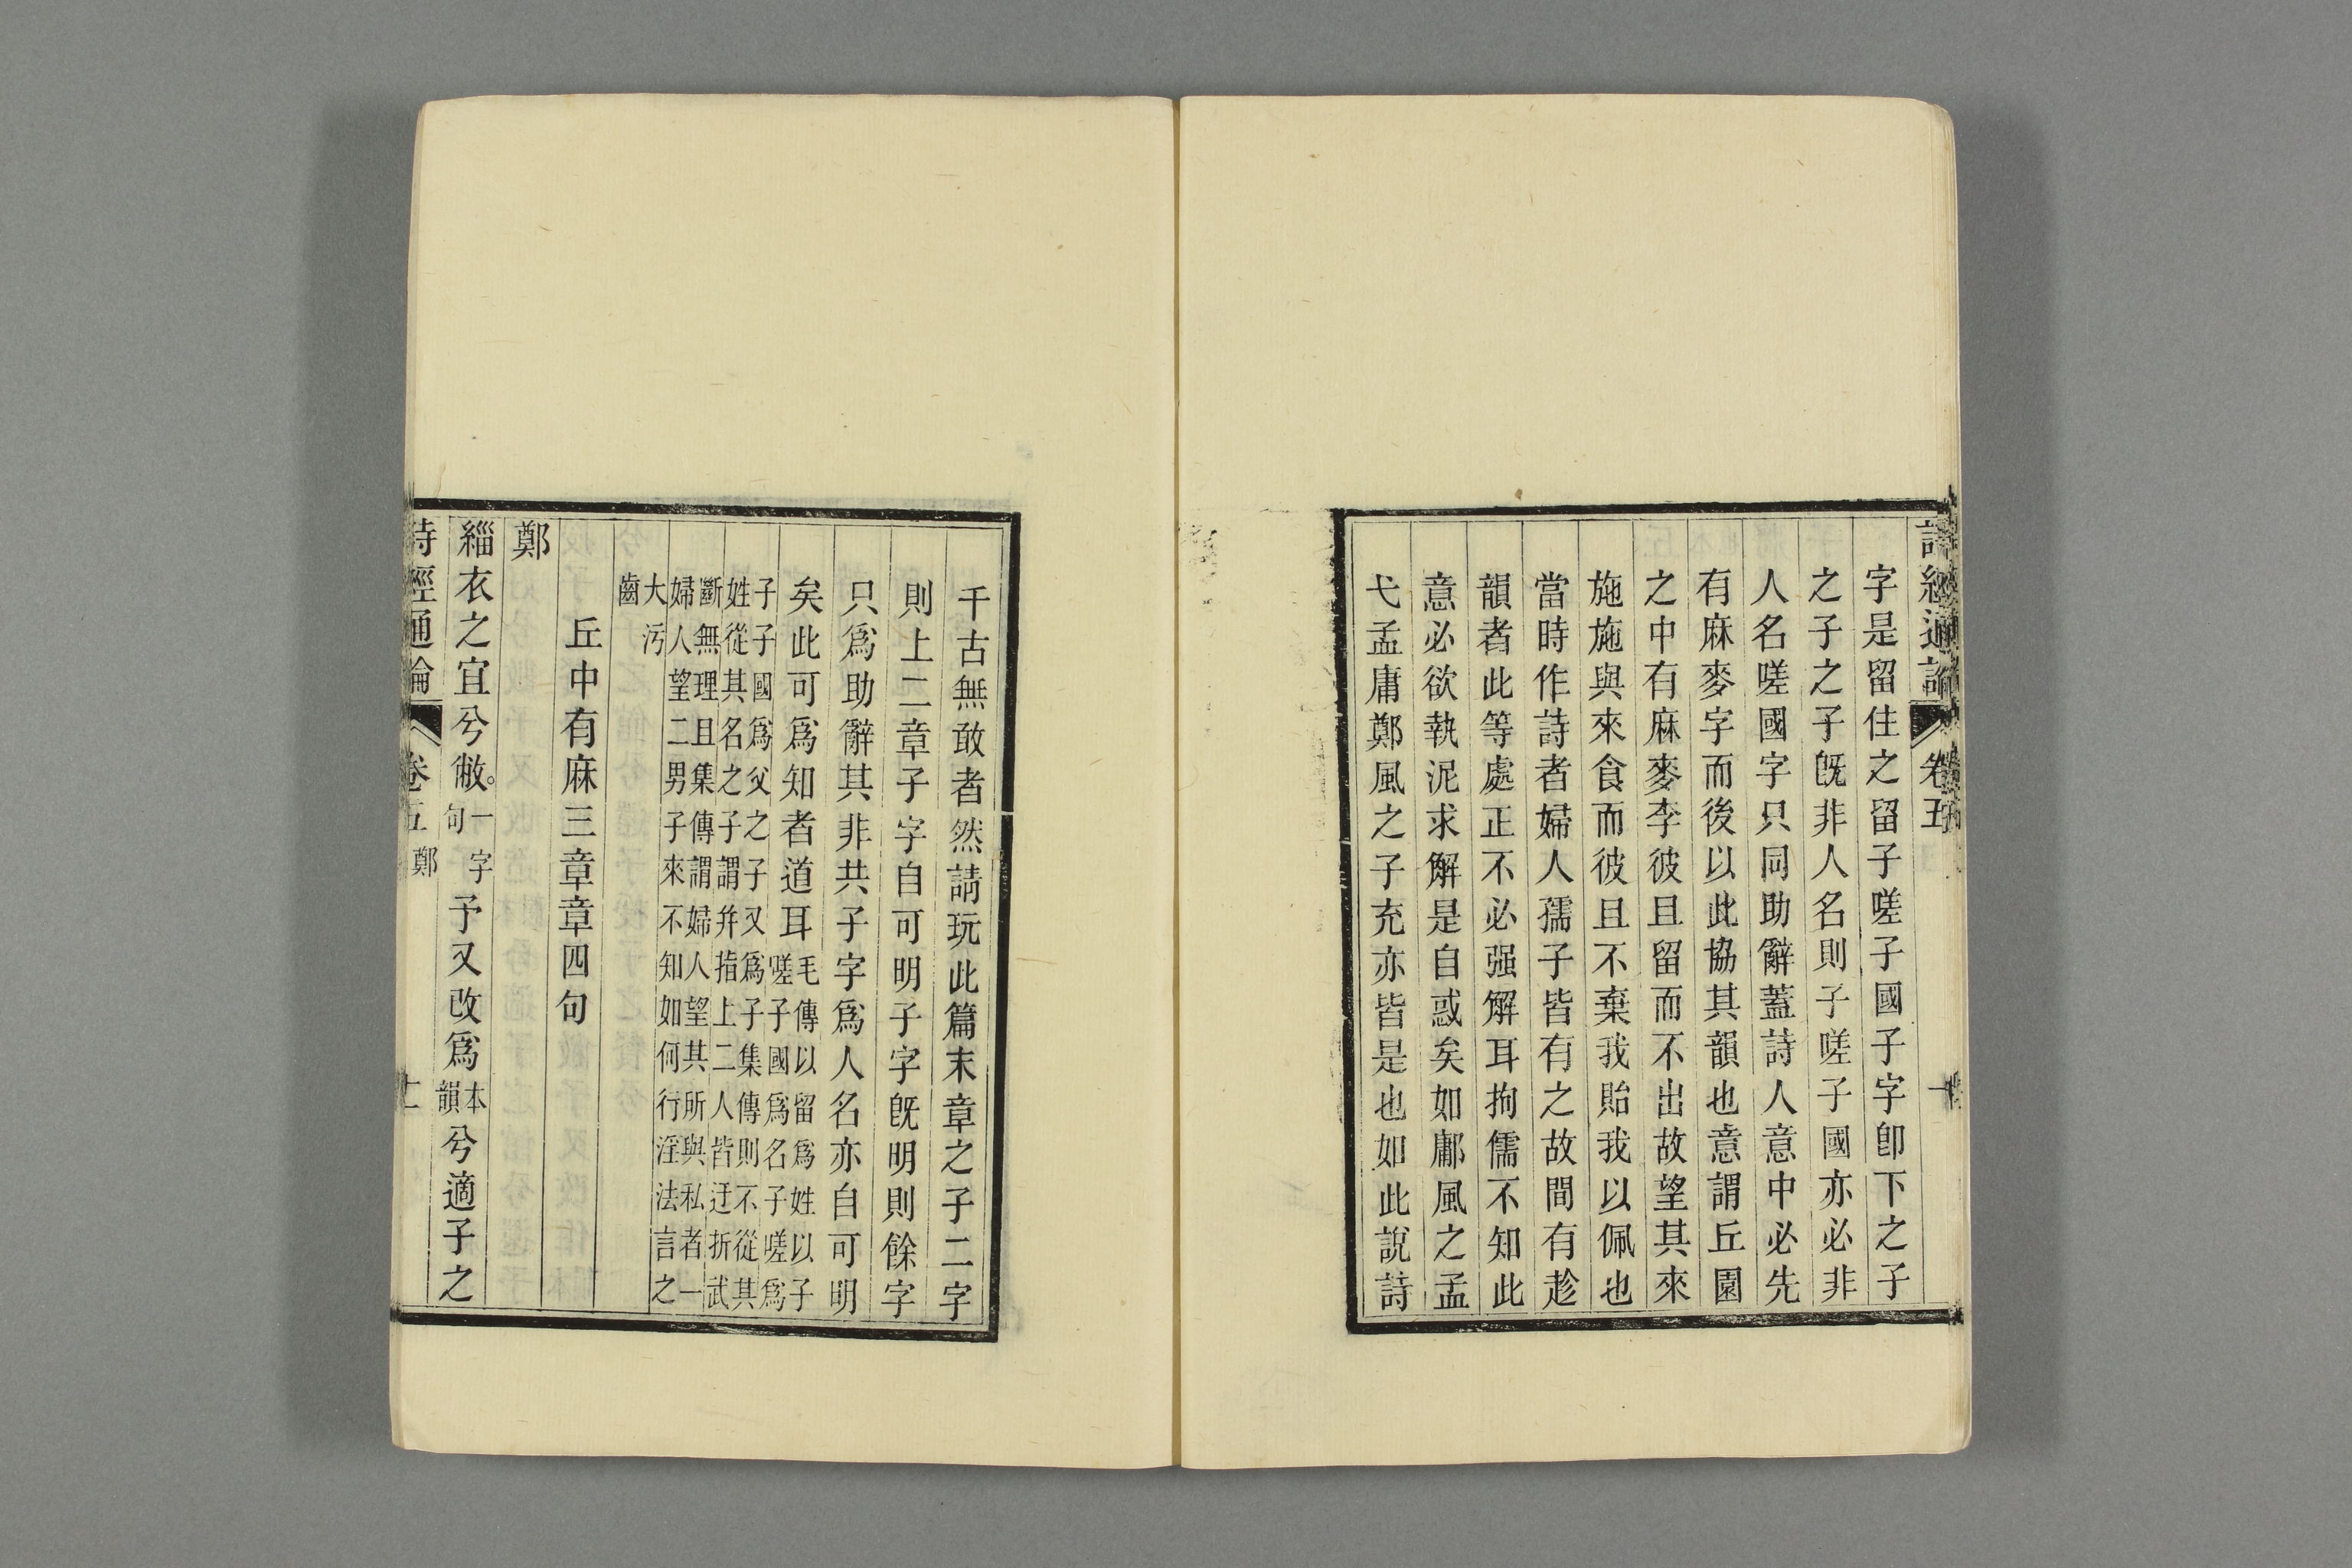 詩經通論 卷五
字是留住之留子嗟子國子字卽下之子
之子之子旣非人名則子嗟子國亦必非
人名嗟國字只同助辭蓋詩人意中必先
有麻麥字而後以此協其韻也意謂丘園
之中有麻麥李彼且留而不出故望其來
施施與來食而彼且不棄我貽我以佩也
當時作詩者婦人孺子皆有之故間有趁
韻者此等處正不必强解耳拘儒不知此
意必欲執泥求解是自惑矣如鄘風之孟
弋孟庸鄭風之子充亦皆是也如此說詩
千古無敢者然請玩此篇末章之子二字
則上二章子字自可明子字旣明則餘字
只爲助辭其非共子字爲人名亦自可明
矣此可爲知者道耳
毛傳以留爲姓以子
嗟子國爲名子嗟爲
子子國爲父之子又爲子集傳則不從其
姓從其名之子謂幷指上二人皆迂折武
斷無理且集傳謂婦人望其所與私者一
婦人望二男子來不知如何行淫法言之
大污
齒
丘中有麻三章章四句
鄭
緇衣之宜兮敝。一字句予又改爲本韻兮適子之
詩經通論 卷五 鄭 十一